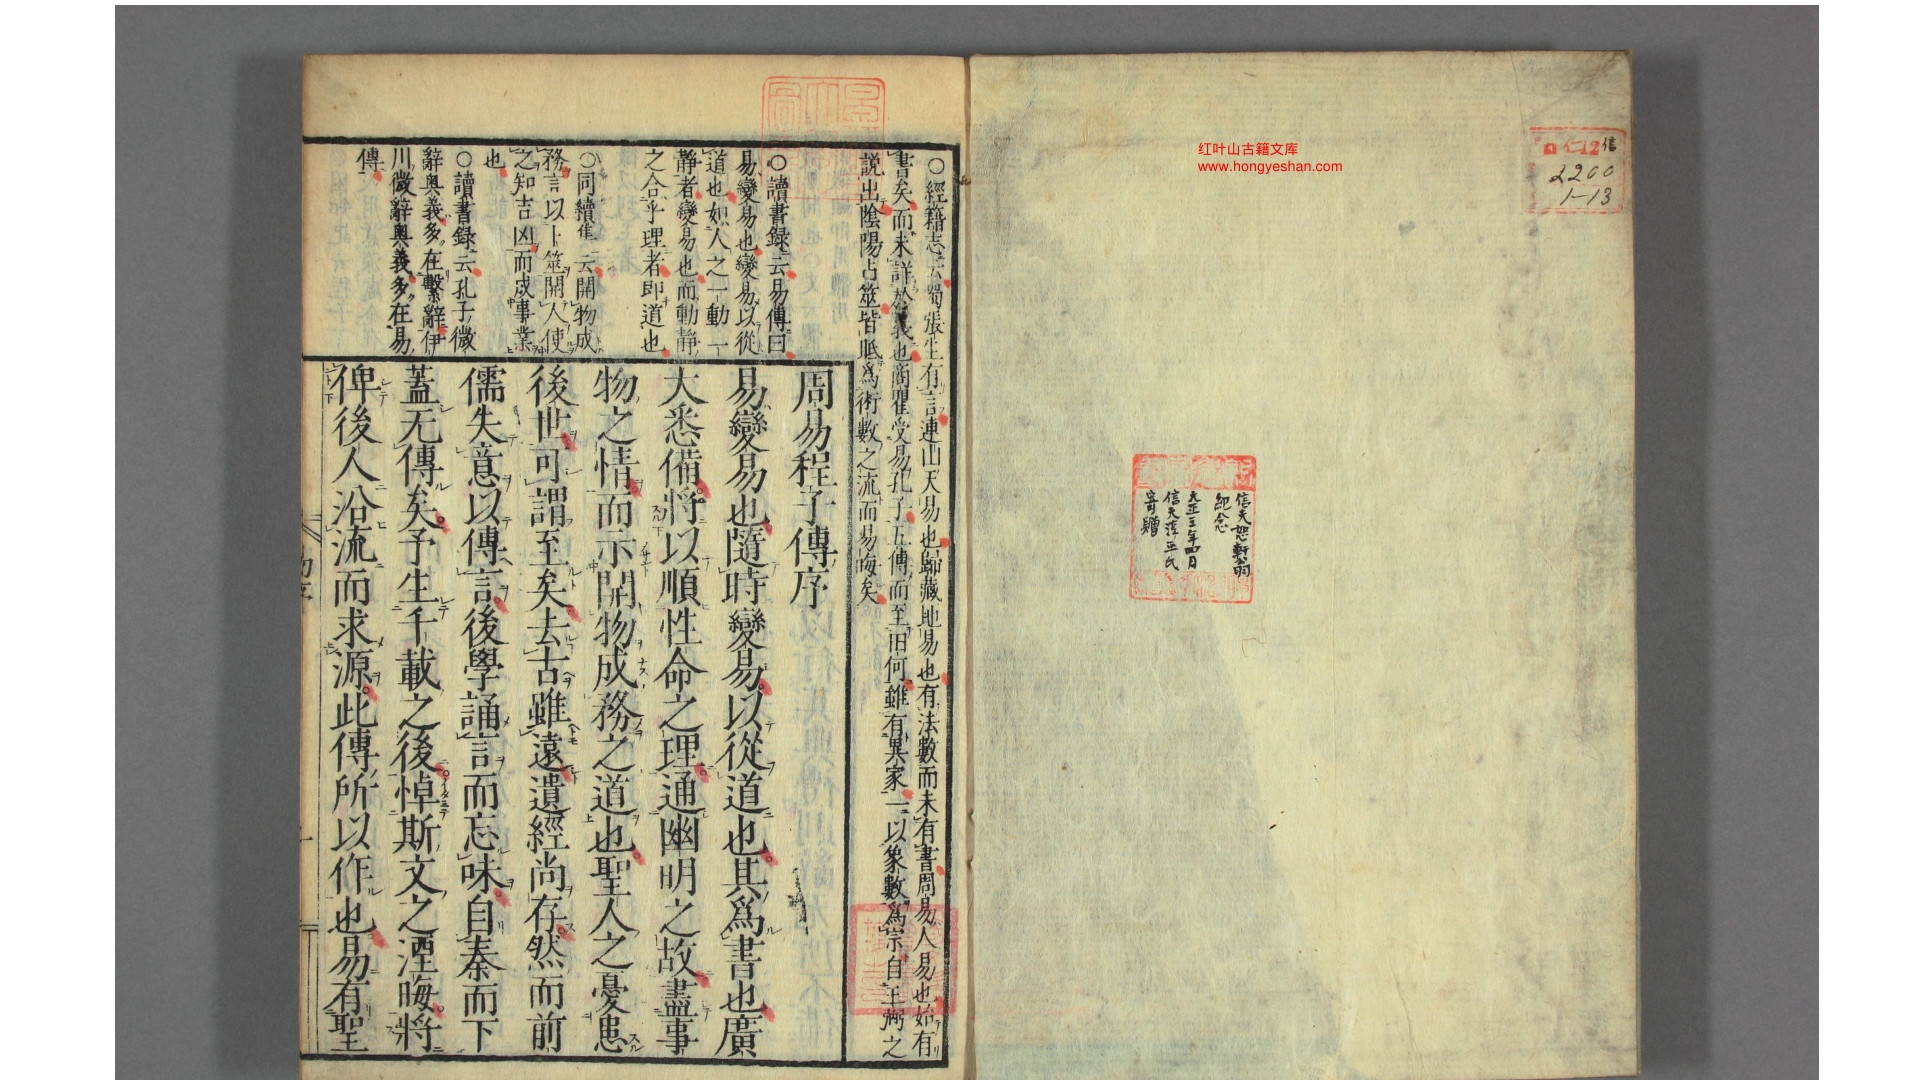 红叶山古籍文库
www.hongyeshan.com
信
2200
1-13
信天恕軒翁
紀念
大正三年四月
信天淳平氏
寄贈
○經籍志云蜀張生有言連山天易也歸藏地易也有法數而未有書周易人易也始有
書矣而未詳於義也商瞿受易孔子五傳而至田何雖有異家一以象數爲宗自王弼之
説出陰陽占筮皆眡爲術數之流而易晦矣
○讀書録云易傳曰
易變易也變易以從
道也如人之一動一
靜者變易也而動靜
之合乎理者即道也
○同續集云開物成
務言以卜筮開人使
之知吉凶而成事業
也
○讀書録云孔子微
辭奥義多在繫辭伊
川微辭奥義多在易
傳
周易程子傳序
易變易也隨時變易以從道也其爲書也廣
大悉備將以順性命之理通幽明之故盡事
物之情而示開物成務之道也聖人之憂患
後世可謂至矣去古雖遠遺經尚存然而前
儒失意以傳言後學誦言而忘味自秦而下
蓋无傳矣予生千載之後悼斯文之湮晦將
俾後人沿流而求源此傳所以作也易有聖